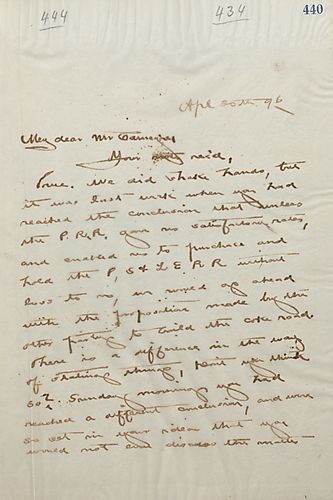 444
434
440
Apl 20th 96
My dear Mr Carnegie,
Your recd,
True. We did shake hands, but
it was last week when you had
reached the conclusion that unless
the P.R.R. gave us satisfactory rates,
and enabled us to purchase and
hold the P, S & L E R R without
loss to us, we would go ahead
with the proposition made by the
other parties to build the coke road
There is a difference in the way
of stating things, don't you think
so? Sunday mornings you had
reached a different conclusion, and were
so set in your ideas that you
would not even discuss the matter